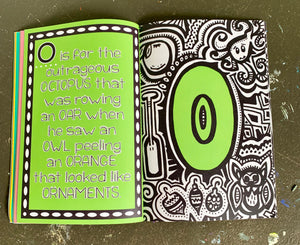 O is for the
outrageous
OCTOPUS that
was rowing
an OAR when
he saw an
OWL peeling
an ORANGE
that looked like
ORNAMENTS
O